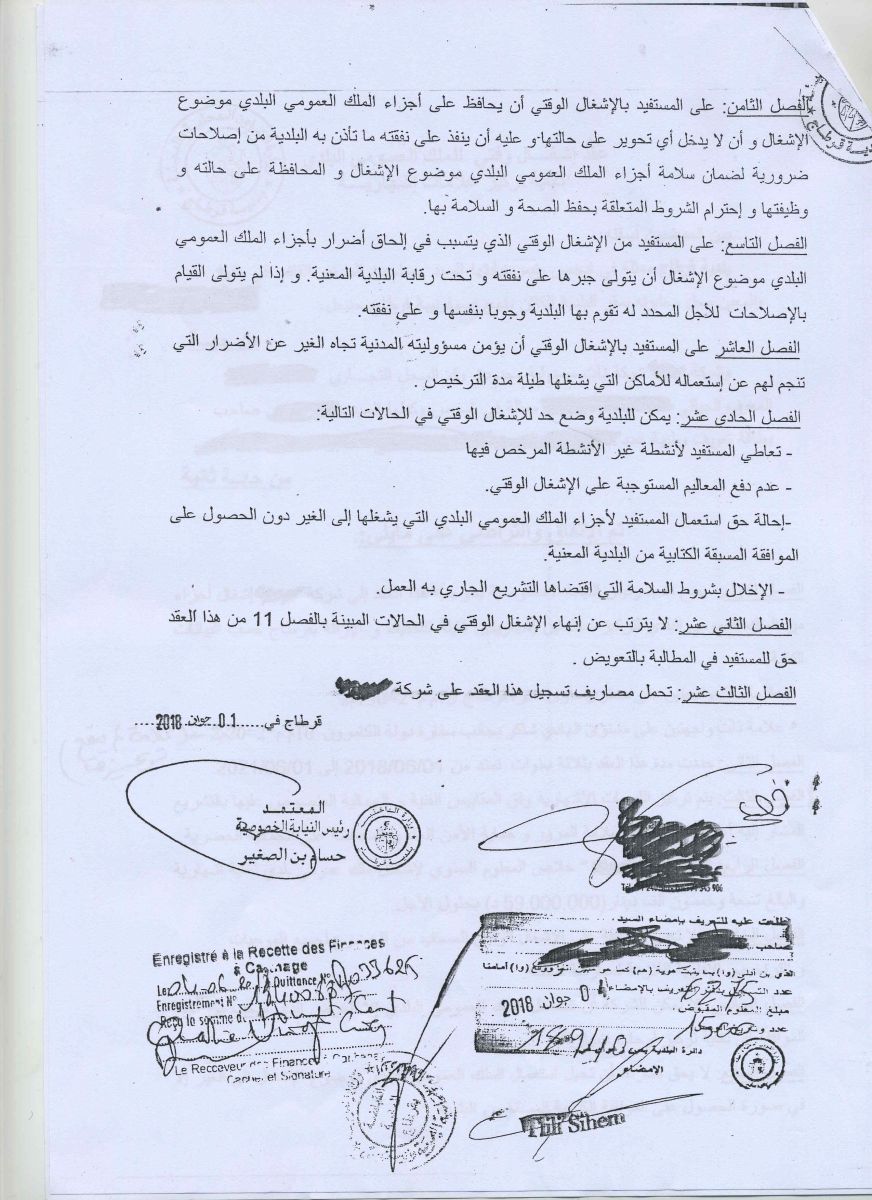 الفصل الثامن: على المستفيد بالإشغال الوقتي أن يحافظ على أجزاء الملك العمومي البلدي موضوع
الإشغال و أن لا يدخل أي تحوير على حالتها و عليه أن ينفذ على نفقته ما تأذن به البلدية من إصلاحات
ضرورية لضمان سلامة أجزاء الملك العمومي البلدي موضوع الإشغال و المحافظة على حالته و
وظيفتها و إحترام الشروط المتعلقة بحفظ الصحة و السلامة بها.
الفصل التاسع: على المستفيد من الإشغال الوقتي الذي يتسبب في إلحاق أضرار بأجزاء الملك العمومي
البلدي موضوع الإشغال أن يتولى جبرها على نفقته و تحت رقابة البلدية المعنية. و إذا لم يتولى القيام
بالإصلاحات للأجل المحدد له تقوم بها البلدية وجوبا بنفسها و على نفقته.
الفصل العاشر على المستفيد بالإشغال الوقتي أن يؤمن مسؤوليته المدنية تجاه الغير عن الأضرار التي
تنجم لهم عن إستعماله للأماكن التي يشغلها طيلة مدة الترخيص .
الفصل الحادي عشر: يمكن للبلدية وضع حد للإشغال الوقتي في الحالات التالية:
- تعاطي المستفيد لأنشطة غير الأنشطة المرخص فيها
- عدم دفع المعاليم المستوجبة على الإشغال الوقتي.
-إحالة حق استعمال المستفيد لأجزاء الملك العمومي البلدي التي يشغلها إلى الغير دون الحصول على
الموافقة المسبقة الكتابية من البلدية المعنية.
- الإخلال بشروط السلامة التي اقتضاها التشريع الجاري به العمل.
الفصل الثاني عشر: لا يترتب عن إنهاء الإشغال الوقتي في الحالات المبينة بالفصل 11 من هذا العقد
حق للمستفيد في المطالبة بالتعويض .
الفصل الثالث عشر: تحمل مصاريف تسجيل هذا العقد على شركة
قرطاج في 01 جوان 2018
المعتمد
رئيس النيابة الخصوصية
حسام بن الصغير
Enregistré à la Recette des Finances
à Carthage
Le Quittance N°
Enregistrement N°
Reçu la somme de
Le Receveur des Finances
Cachet et Signature
اطلعت عليه للتعريف بإمضاء السيد
صاحب
جوان 2018
مبلغ المعلوم المقبوض
دائرة البلدية
الامضاء
Tlili Sihem